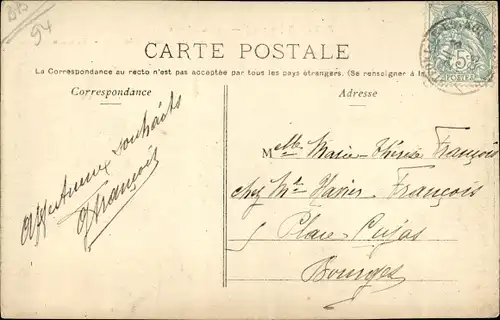 94
CARTE POSTALE
La Correspondance au recto n'est pas acceptée par tous les pays étrangers. (Se renseigner à la
Correspondance
Adresse
Affectueux souhaits
François
Melle Marie-Thérèse François
chez Mr Xavier François
5 Place Cujas
Bourges
5
POSTES